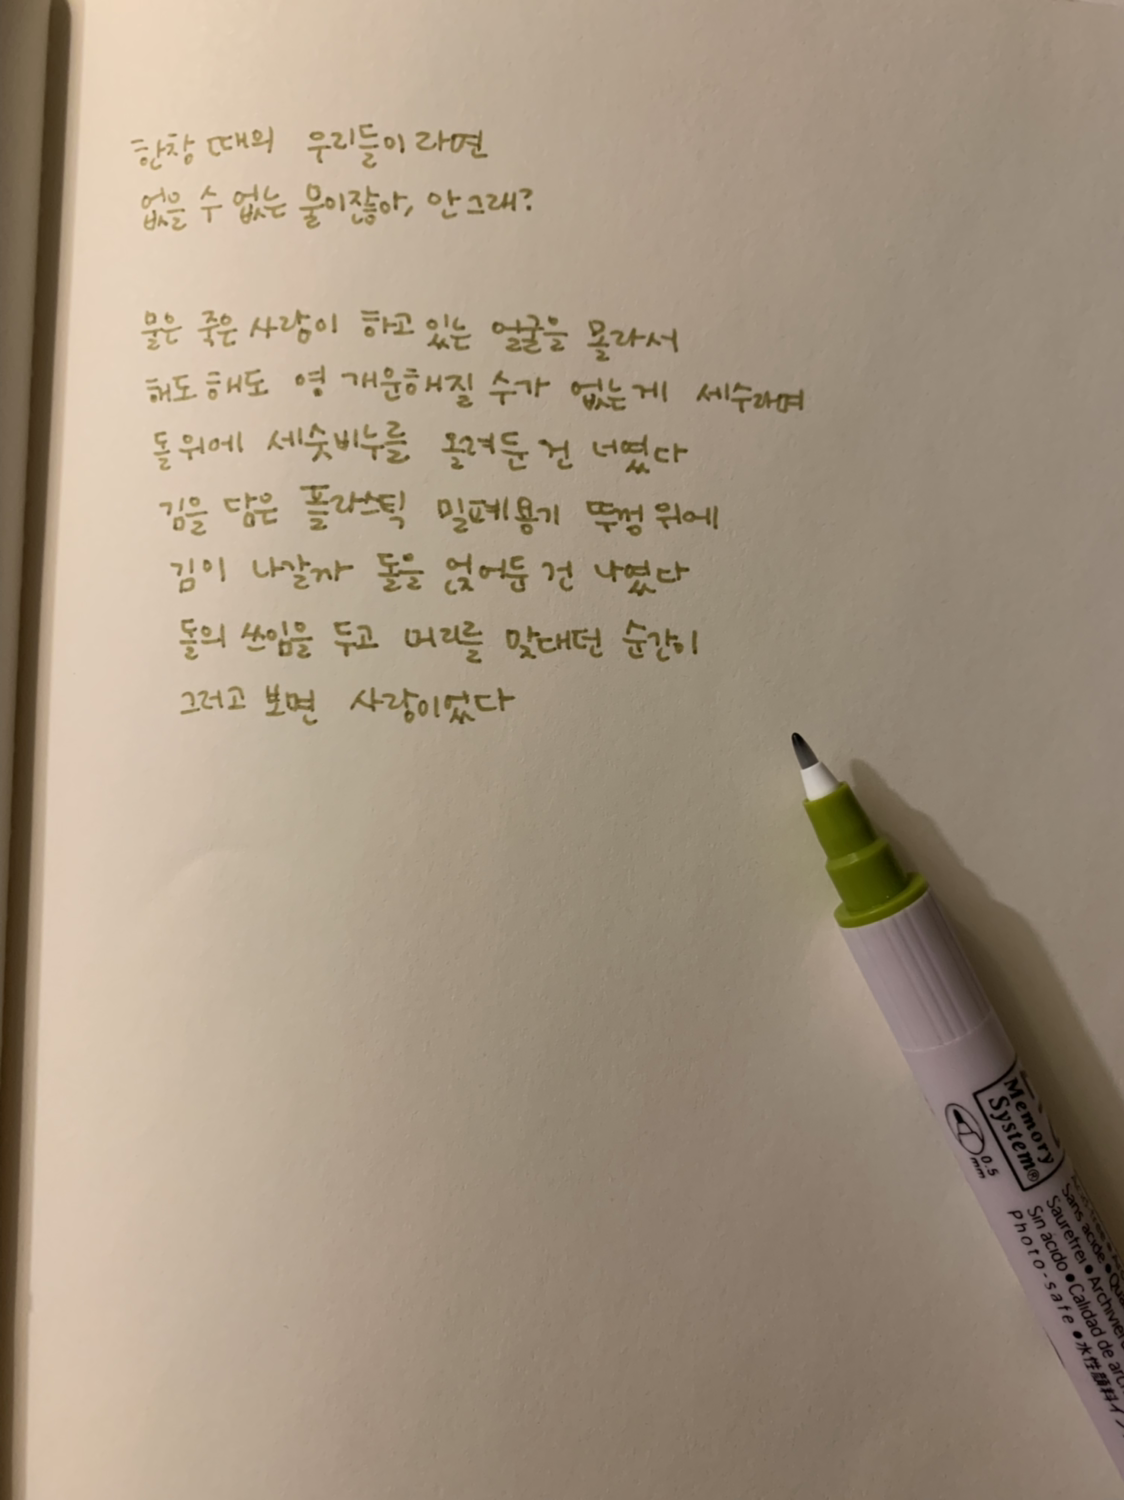 한창 때의 우리들이라면
없을 수 없는 물이잖아, 안 그래?
물은 죽은 사람이 하고 있는 얼굴을 몰라서
해도 해도 영 개운해질 수가 없는게 세수라며
돌 위에 세숫비누를 올려둔 건 너였다
김을 담은 플라스틱 밀폐용기 뚜껑 위에
김이 나갈까 돌을 얹어둔 건 나였다
돌의 쓰임을 두고 머리를 맞대던 순간이
그러고 보면 사랑이었다
Memory
System®
0.5
mm
Sans acide
Saurefrei • Archivier
Sin acido • Calidad de arc
Photo-safe • 水性顔料イ